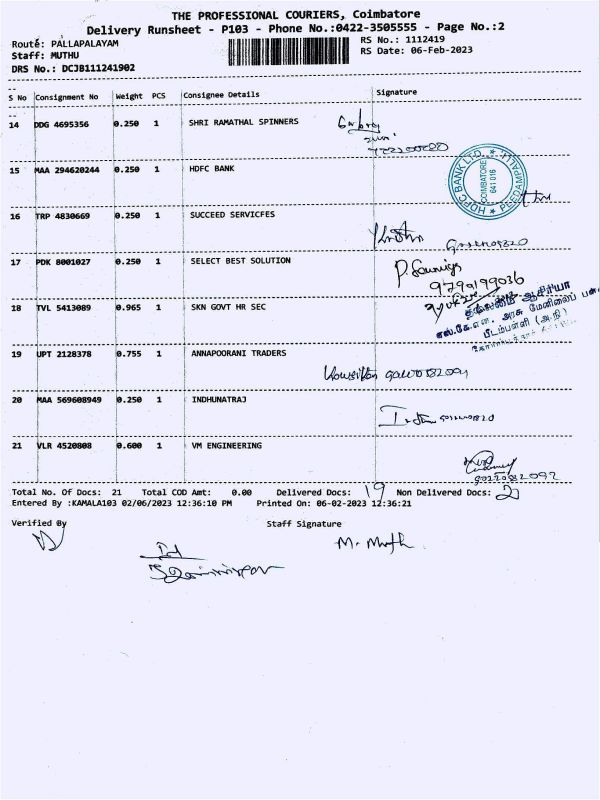 THE PROFESSIONAL COURIERS, Coimbatore
Delivery Runsheet - P103 - Phone No.:0422-3505555 - Page No.:2
Route: PALLAPALAYAM
RS No.: 1112419
Staff: MUTHU
RS Date: 06-Feb-2023
DRS No.: DCJB111241902
S No Consignment No Weight PCS Consignee Details Signature
14 DDG 4695356 0.250 1 SHRI RAMATHAL SPINNERS
15 MAA 294620244 0.250 1 HDFC BANK
HDFC BANK LTD. PEEDAMPALLI
COIMBATORE
641 016
16 TRP 4830669 0.250 1 SUCCEED SERVICFES
17 PDK 8001027 0.250 1 SELECT BEST SOLUTION
P. Sowmiya
9790199036
18 TVL 5413089 0.965 1 SKN GOVT HR SEC
தலைமை ஆசிரியர்
எஸ்.கே.என். அரசு மேனிலைப்
பீடம்பள்ளி (அ.நி)
19 UPT 2128378 0.755 1 ANNAPOORANI TRADERS
20 MAA 569608949 0.250 1 INDHUNATRAJ
21 VLR 4520808 0.600 1 VM ENGINEERING
Total No. Of Docs: 21 Total COD Amt: 0.00 Delivered Docs: 19 Non Delivered Docs: 2
Entered By :KAMALA103 02/06/2023 12:36:10 PM Printed On: 06-02-2023 12:36:21
Verified By
Staff Signature
M. Muth